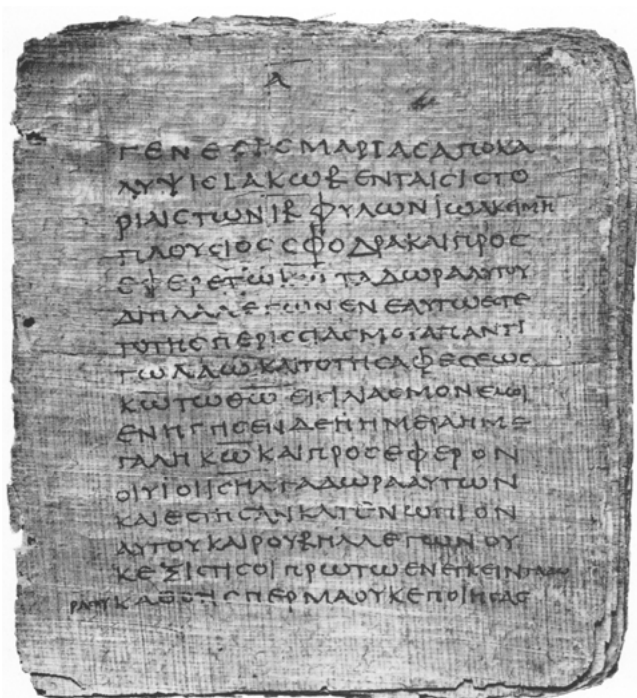 Α
ΓΕΝΕϹΙϹΜΑΡΙΑϹΑΠΟΚΑ
ΛΥΨΙϹΙΑΚΩΒΕΝΤΑΙϹΙϹΤΟ
ΡΙΑΙϹΤΩΝΙΒΦΥΛΩΝΙΩΑΚΕΙΜΗ
ΠΛΟΥϹΙΟϹϹΦΟΔΡΑΚΑΙΠΡΟϹ
ΕΦΕΡΕΤΩΚΩΤΑΔΩΡΑΑΥΤΟΥ
ΔΙΠΛΑΛΕΓΩΝΕΝΕΑΥΤΩΕϹΤΕ
ΤΟΤΗϹΠΕΡΙϹϹΙΑϹΜΟΥΑΠΑΝΤΙ
ΤΩΛΑΩΚΑΙΤΟΤΗϹΑΦΕϹΕΩϹ
ΚΩΤΩΘΩΕΙϹΙΛΑϹΜΟΝΕΜΟΙ
ΕΝΗΓΗϹΕΝΔΕΗΗΜΕΡΑΗΜΕ
ΓΑΛΗΚΩΚΑΙΠΡΟϹΕΦΕΡΟΝ
ΟΙΥΙΟΙΙϹΗΛΤΑΔΩΡΑΑΥΤΩΝ
ΚΑΙΕϹΤΗϹΑΝΚΑΤΕΝΩΠΙΟΝ
ΑΥΤΟΥΚΑΙΡΟΥΒΗΛΛΕΓΩΝΟΥ
ΚΕΞΙϹΤΙϹΟΙΠΡΩΤΩΕΝΕΓΚΕΙΝΤΑΔΩ
ΡΑϹΟΥΚΑΘΟΤΙϹΠΕΡΜΑΟΥΚΕΠΟΙΗϹΑϹ